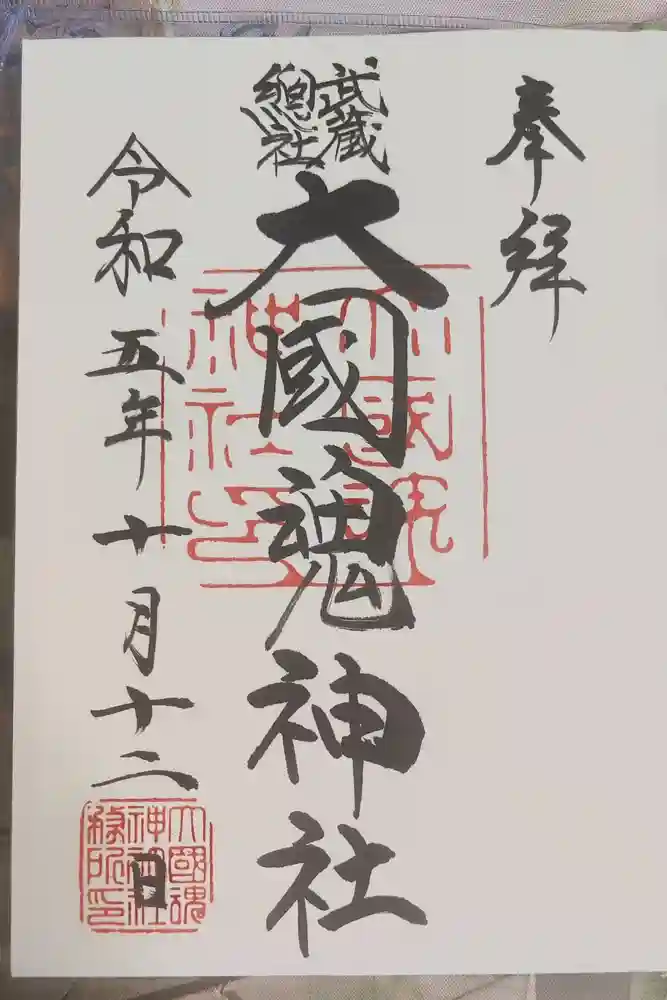 奉拜
武蔵
總社
大國魂神社
令和五年十月十二日
大國魂
神社印
大國魂
神社社
務所印